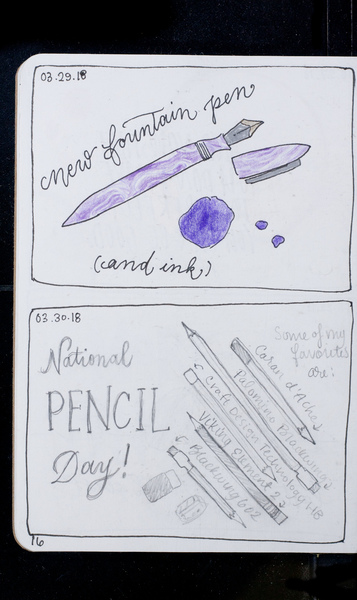 03.29.18
new fountain pen
(and ink)
03.30.18
National
PENCIL
Day!
Some of my
favorites
are:
Caran d'Ache
Palomino Blackwing
Craft Design Technology HB
Viking Element 2
Blackwing 602
16